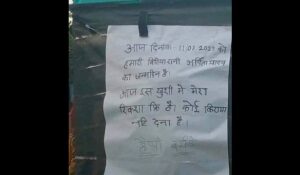 आज दिनांक 11/01/2023 को
हमारी बिटिया रानी
का जन्मदिन है।
आज इस खुशी में मेरा
रिक्शा फ्रि है। कोई किराया
नहि देना है।
हैप्पी